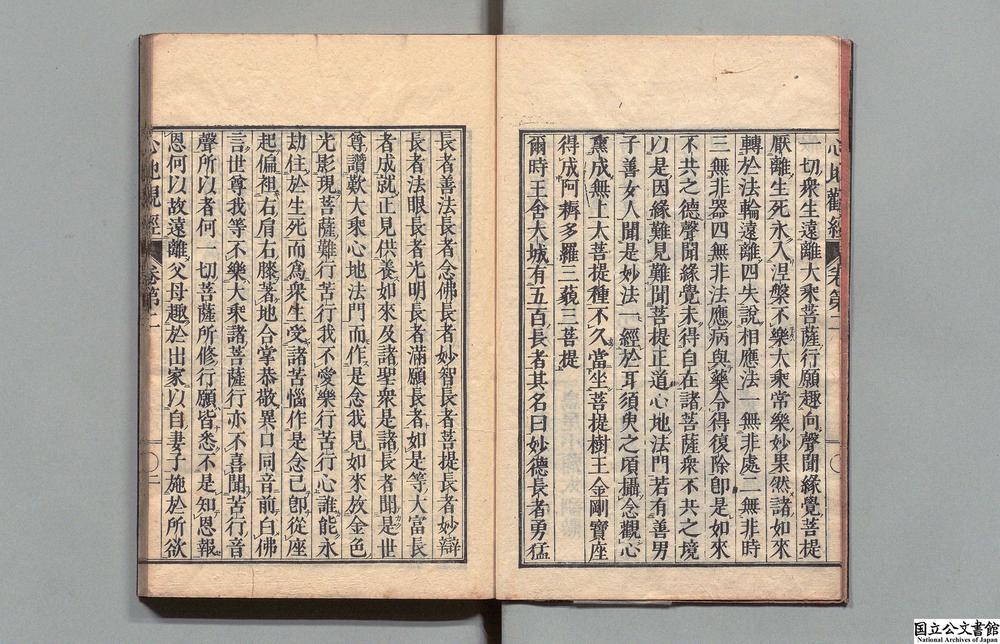 心地觀經 卷第二
一切衆生遠離大乘菩薩行願趣向聲聞緣覺菩提
厭離生死永入涅槃不樂大乘常樂妙果然諸如來
轉於法輪遠離四失說相應法一無非處二無非時
三無非器四無非法應病與藥令得復除卽是如來
不共之德聲聞緣覺未得自在諸菩薩衆不共之境
以是因緣難見難聞菩提正道心地法門若有善男
子善女人聞是妙法一經於耳須臾之頃攝念觀心
熏成無上大菩提種不久當坐菩提樹王金剛寶座
得成阿耨多羅三藐三菩提
爾時王舍大城有五百長者其名曰妙德長者勇猛
長者善法長者念佛長者妙智長者菩提長者妙辯
長者法眼長者光明長者滿願長者如是等大富長
者成就正見供養如來及諸聖衆是諸長者聞是世
尊讚歎大乘心地法門而作是念我見如來放金色
光影現菩薩難行苦行我不愛樂行苦行心誰能永
劫住於生死而爲衆生受諸苦惱作是念已卽從座
起偏袒右肩右膝著地合掌恭敬異口同音前白佛
言世尊我等不樂大乘諸菩薩行亦不喜聞苦行音
聲所以者何一切菩薩所修行願皆悉不是知恩報
恩何以故遠離父母趣於出家以自妻子施於所欲
心地觀經 卷第二
〇二
国立公文書館
National Archives of Japan